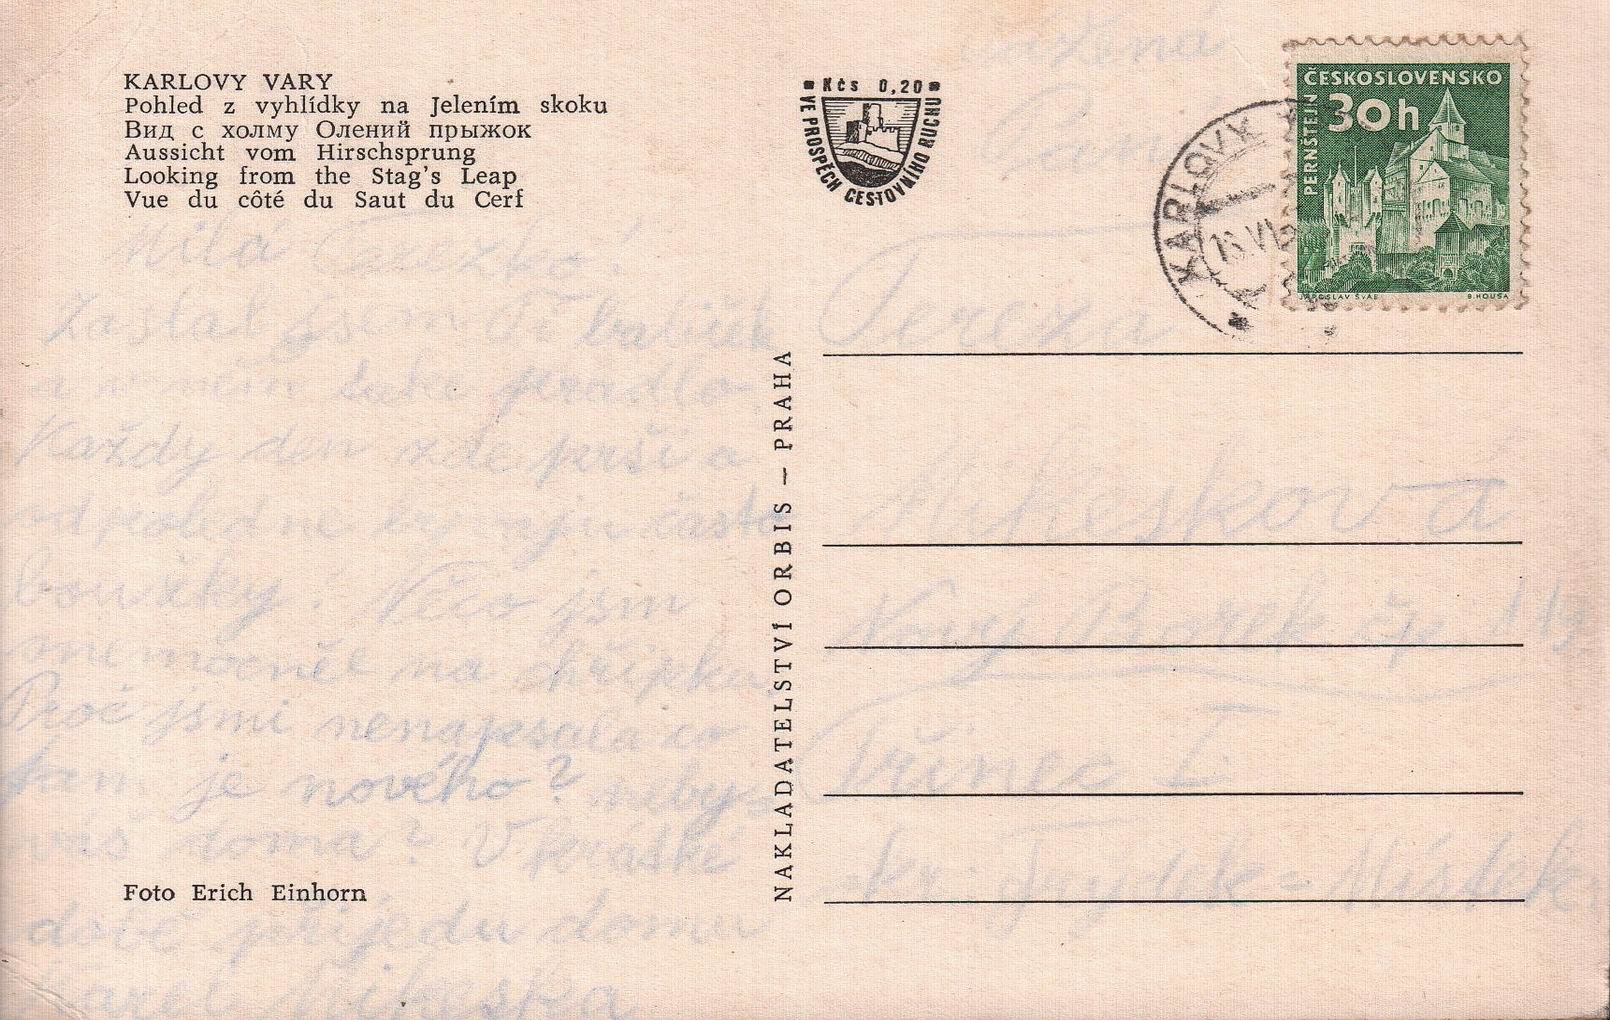 KARLOVY VARY
Pohled z vyhlídky na Jelením skoku
Вид с холму Олений прыжок
Aussicht vom Hirschsprung
Looking from the Stag's Leap
Vue du côté du Saut du Cerf
Kčs 0,20
VE PROSPĚCH CESTOVNÍHO RUCHU
KARLOVY
16.VI
ČESKOSLOVENSKO
30h
PERNŠTEJN
JAROSLAV ŠVÁB
B. HOUSA
Milá Terezko!
Zaslal jsem Ti balíček
a v něm také prádlo.
Každy den zde prší a
odpoledne bývají často
bouřky. Něco jsem
onemocněl na chřipku.
Proč jsmi nenapsala co
tam je nového?
doma? V krátké
době přijedu domu
Karel Mikeska
NAKLADATELSTVÍ ORBIS – PRAHA
Foto Erich Einhorn
Vážená
Paní
Tereza
Mikeskova
Nový Borek čp 113
Třinec I
okr. Frydek=Místek